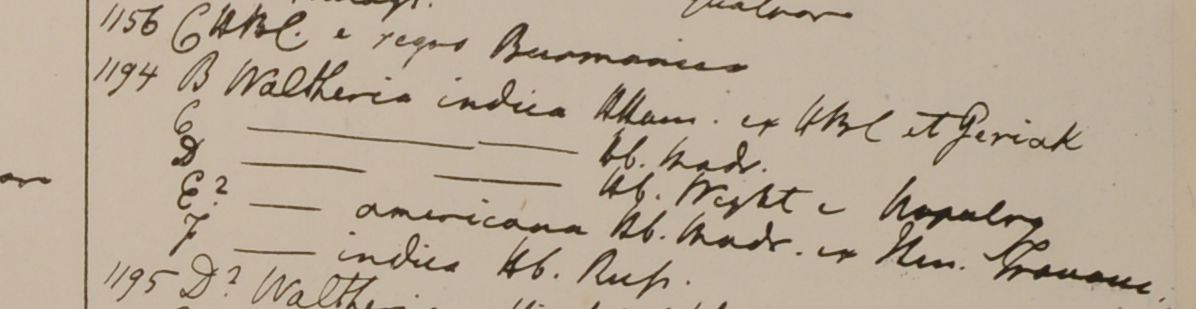 1156 C HBC. e regno Burmanico
1194 B Waltheria indica HHam. ex HBC et Geriak
C ——— ——— Hb. Madr.
D ——— ——— Hb. Wight e
E? —— americana Hb. Madr. ex
F —— indica Hb. Russ.
1195 D? Waltheria